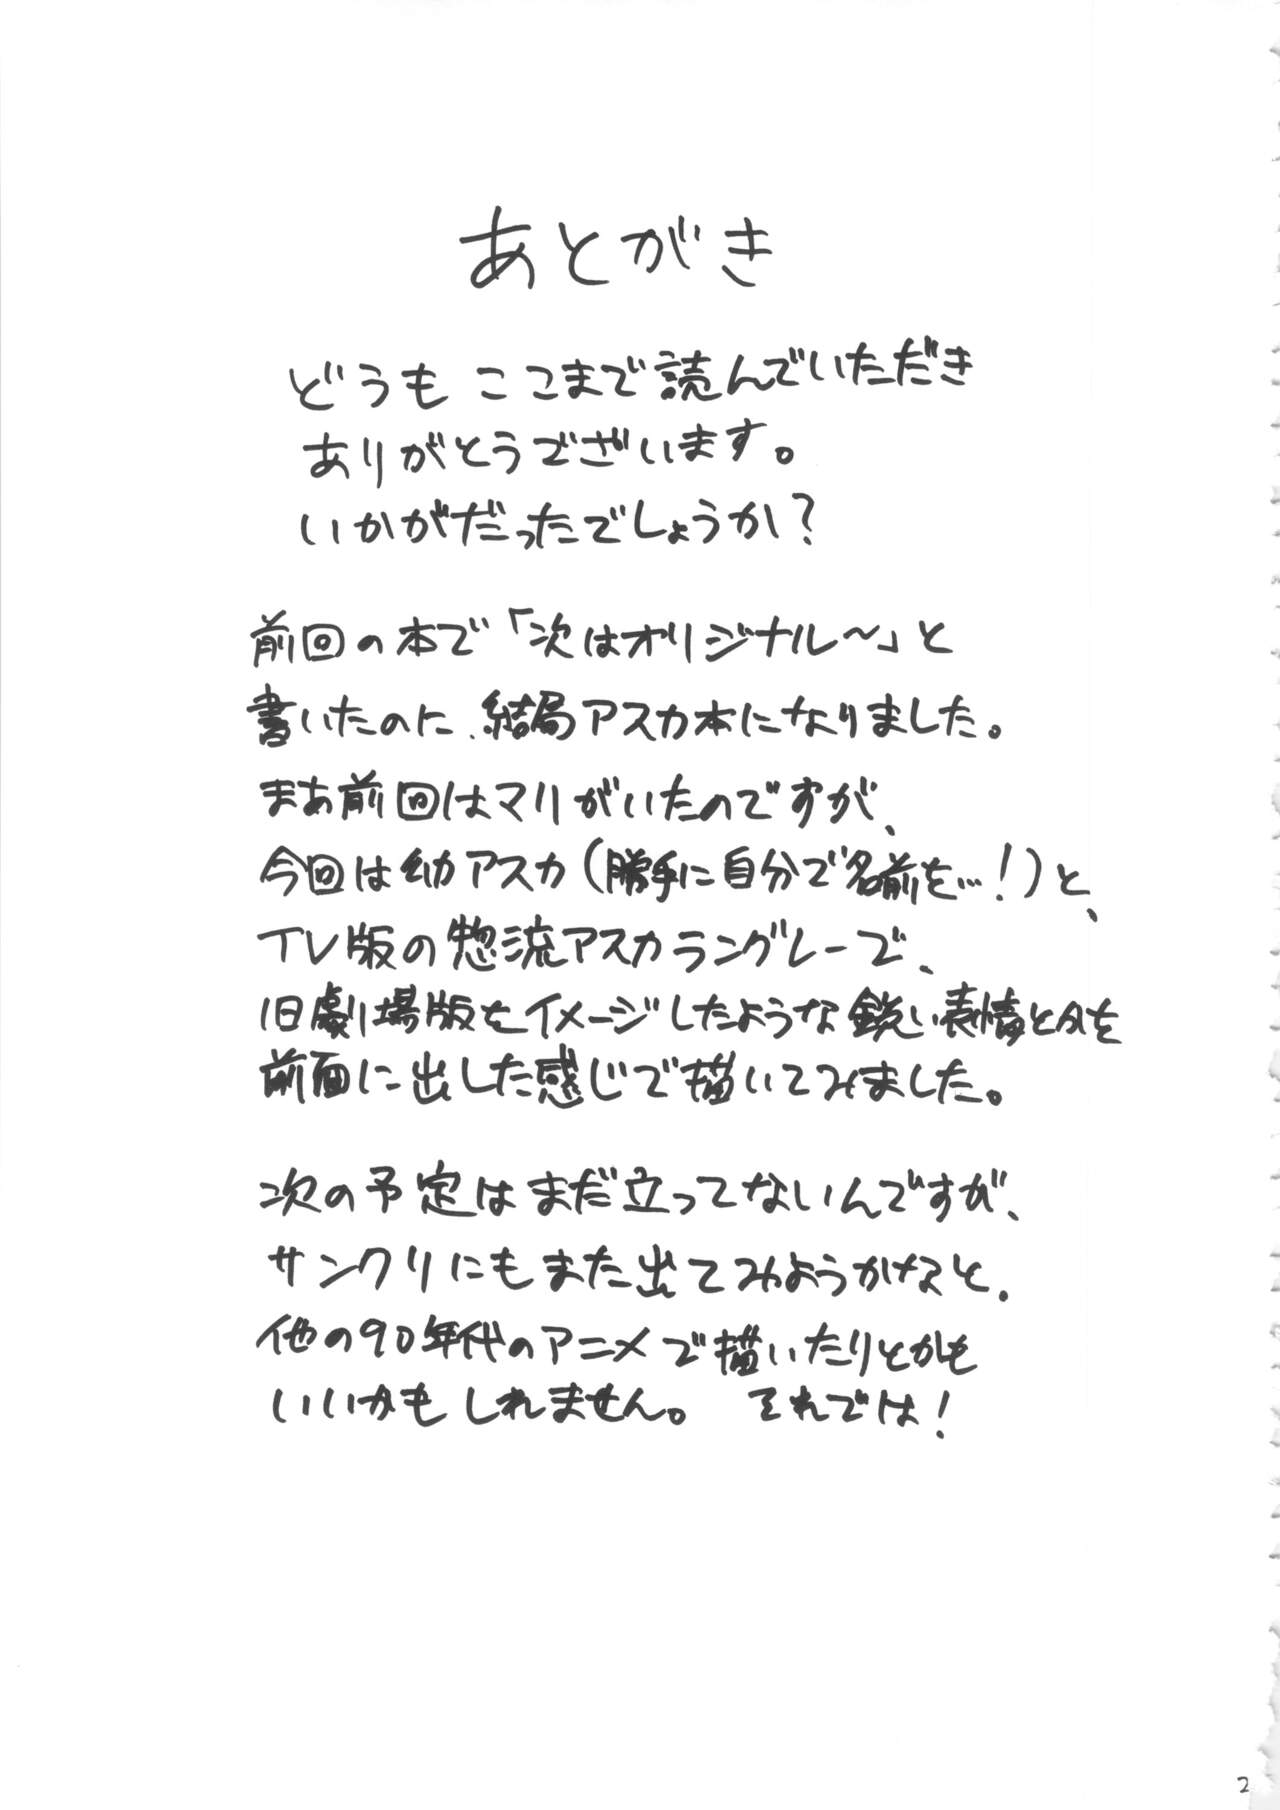 あとがき
どうも ここまで読んでいただき
ありがとうでざいます。
いかがだったでしょうか?
前回の本で「次はオリジナル～」と
書いたのに、結局アスカ本になりました。
まあ前回はマリがいたのですが、
今回は幼アスカ(勝手に自分で名前を…!)と、
TV版の惣流アスカラングレーで、
旧劇場版をイメージしたような鋭い表情とかを
前面に出した感じで描いてみました。
次の予定はまだ立ってないんですが、
サンクリにもまた出てみようかなと、
他の90年代のアニメで描いたりとかも
いいかもしれません。 それでは!
2